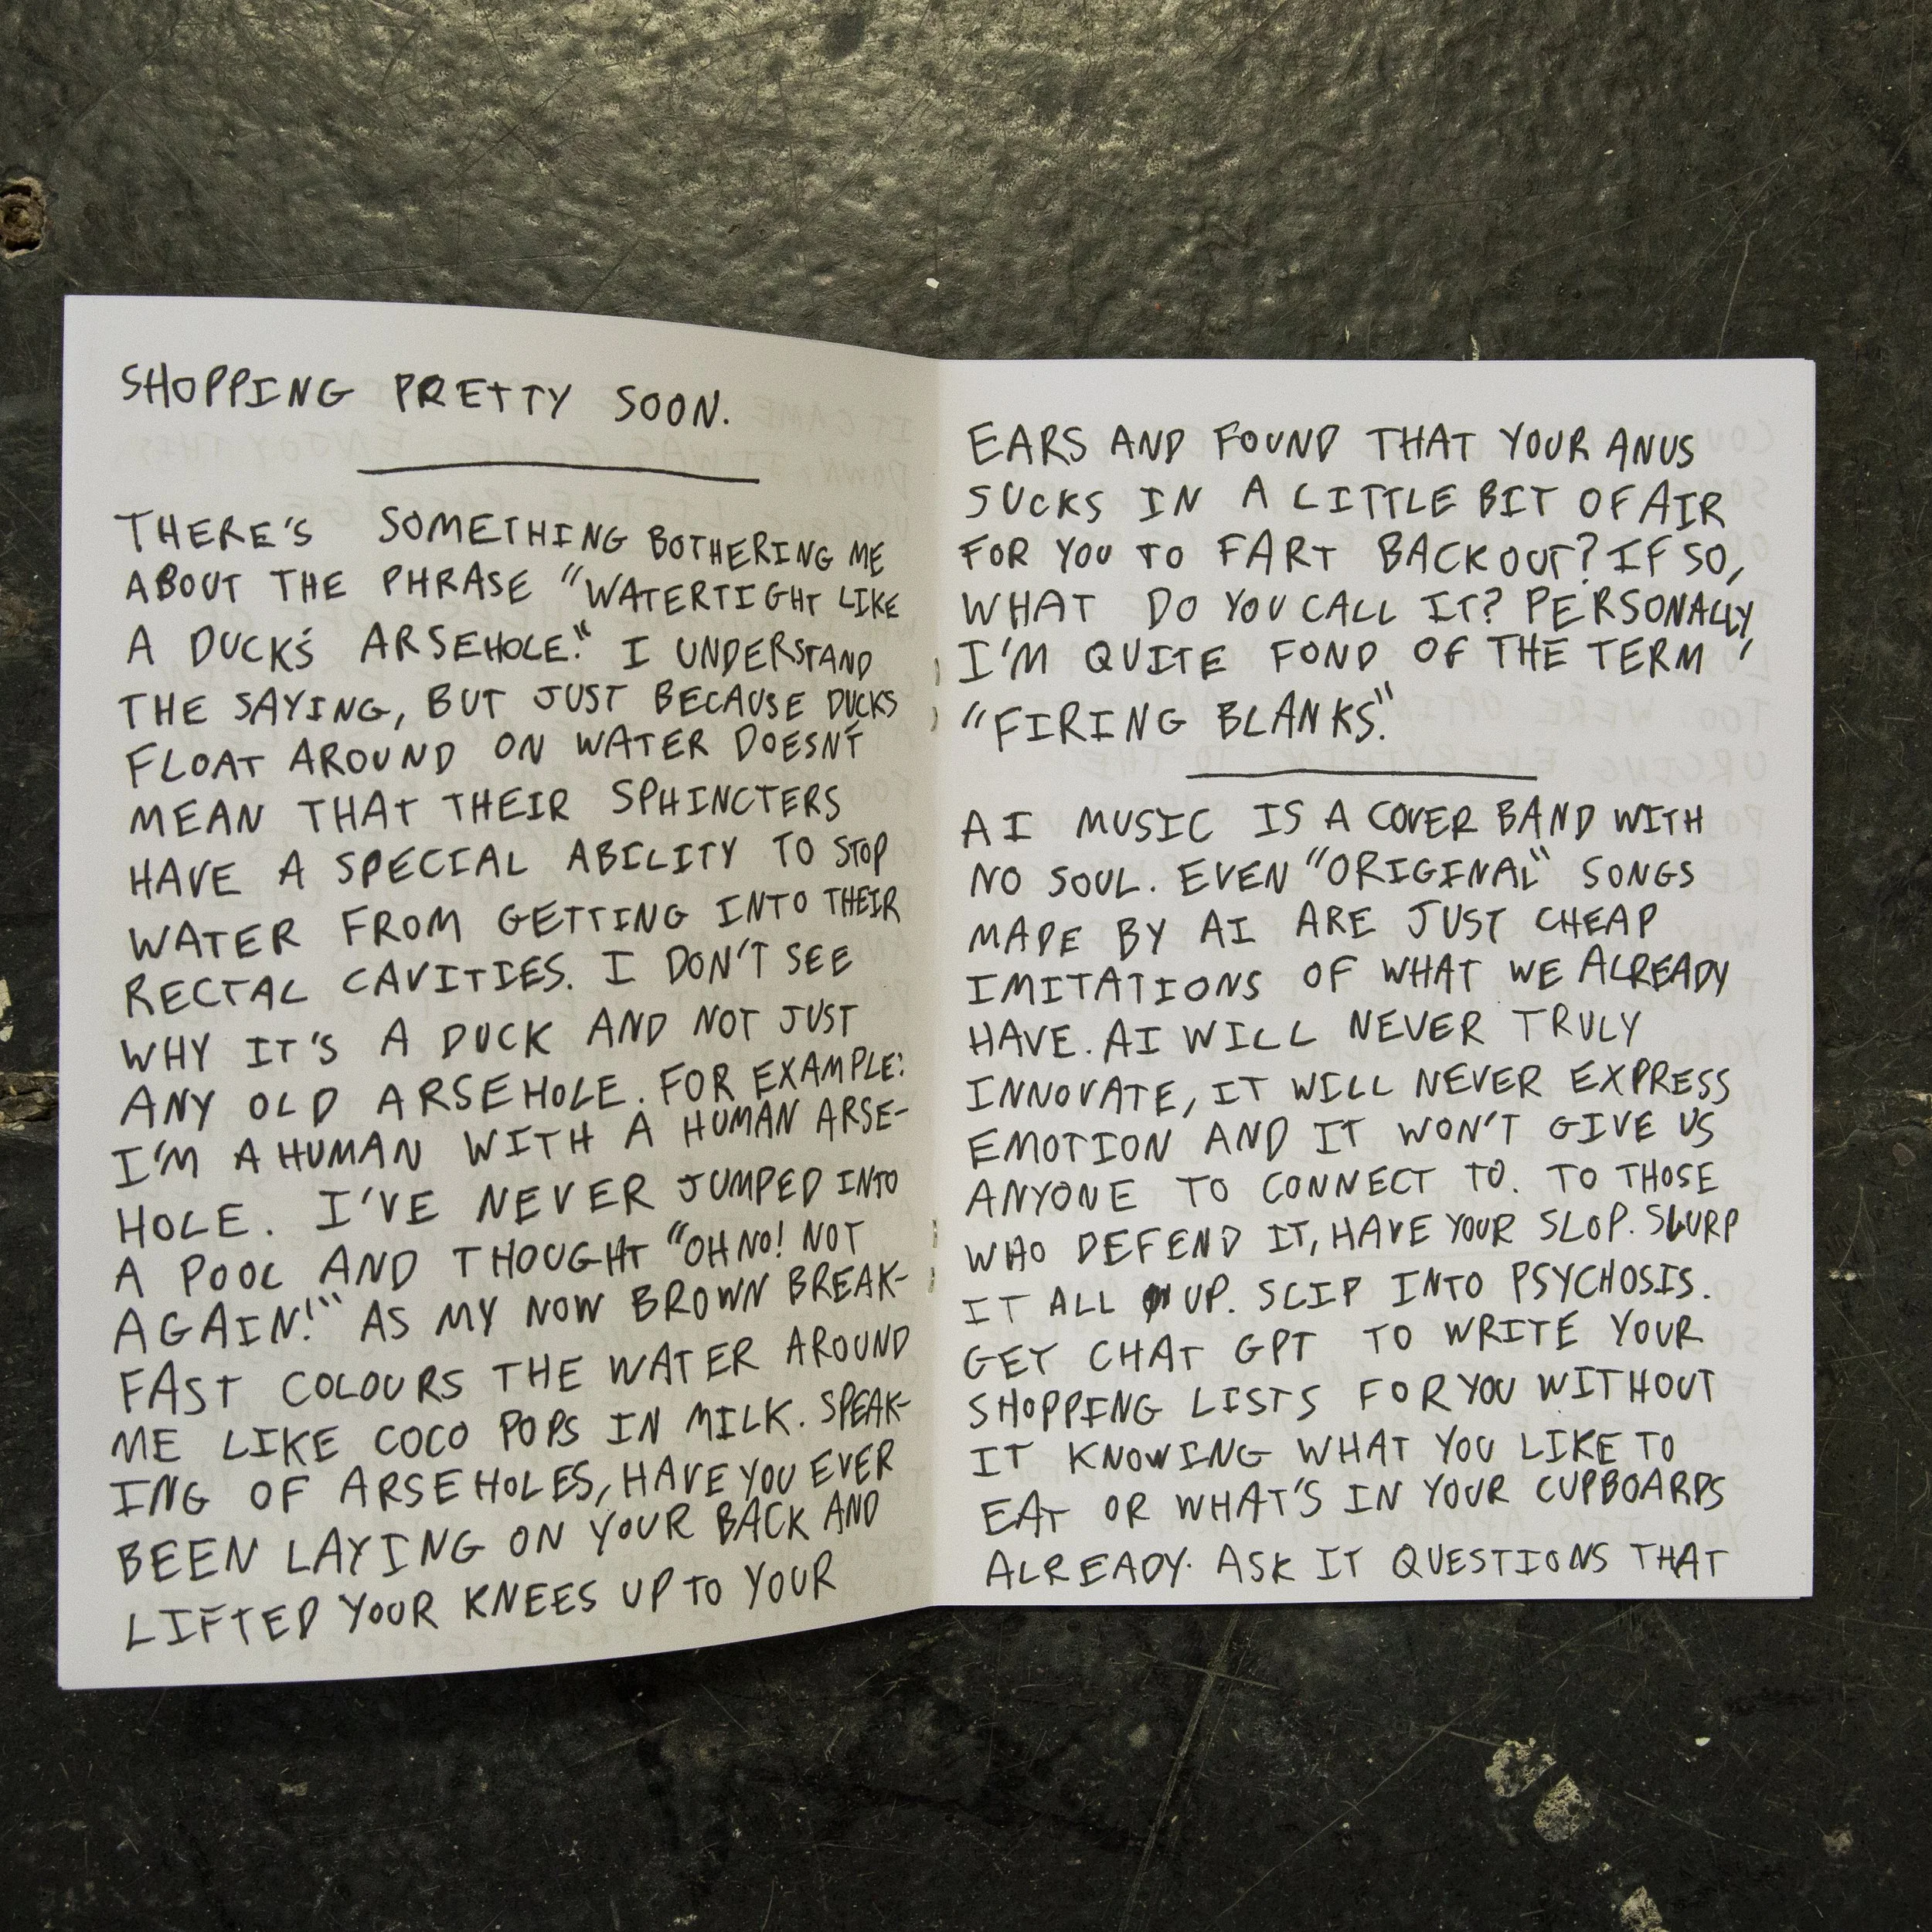 SHOPPING PRETTY SOON.
THERE'S SOMETHING BOTHERING ME
ABOUT THE PHRASE "WATERTIGHT LIKE
A DUCK'S ARSEHOLE." I UNDERSTAND
THE SAYING, BUT JUST BECAUSE DUCKS
FLOAT AROUND ON WATER DOESN'T
MEAN THAT THEIR SPHINCTERS
HAVE A SPECIAL ABILITY TO STOP
WATER FROM GETTING INTO THEIR
RECTAL CAVITIES. I DON'T SEE
WHY IT'S A DUCK AND NOT JUST
ANY OLD ARSEHOLE. FOR EXAMPLE:
I'M A HUMAN WITH A HUMAN ARSE-
HOLE. I'VE NEVER JUMPED INTO
A POOL AND THOUGHT "OH NO! NOT
AGAIN!" AS MY NOW BROWN BREAK-
FAST COLOURS THE WATER AROUND
ME LIKE COCO POPS IN MILK. SPEAK-
ING OF ARSEHOLES, HAVE YOU EVER
BEEN LAYING ON YOUR BACK AND
LIFTED YOUR KNEES UP TO YOUR
EARS AND FOUND THAT YOUR ANUS
SUCKS IN A LITTLE BIT OF AIR
FOR YOU TO FART BACK OUT? IF SO,
WHAT DO YOU CALL IT? PERSONALLY,
I'M QUITE FOND OF THE TERM
"FIRING BLANKS."
AI MUSIC IS A COVER BAND WITH
NO SOUL. EVEN "ORIGINAL" SONGS
MADE BY AI ARE JUST CHEAP
IMITATIONS OF WHAT WE ALREADY
HAVE. AI WILL NEVER TRULY
INNOVATE, IT WILL NEVER EXPRESS
EMOTION AND IT WON'T GIVE US
ANYONE TO CONNECT TO. TO THOSE
WHO DEFEND IT, HAVE YOUR SLOP. SLURP
IT ALL UP. SLIP INTO PSYCHOSIS.
GET CHAT GPT TO WRITE YOUR
SHOPPING LISTS FOR YOU WITHOUT
IT KNOWING WHAT YOU LIKE TO
EAT OR WHAT'S IN YOUR CUPBOARDS
ALREADY. ASK IT QUESTIONS THAT